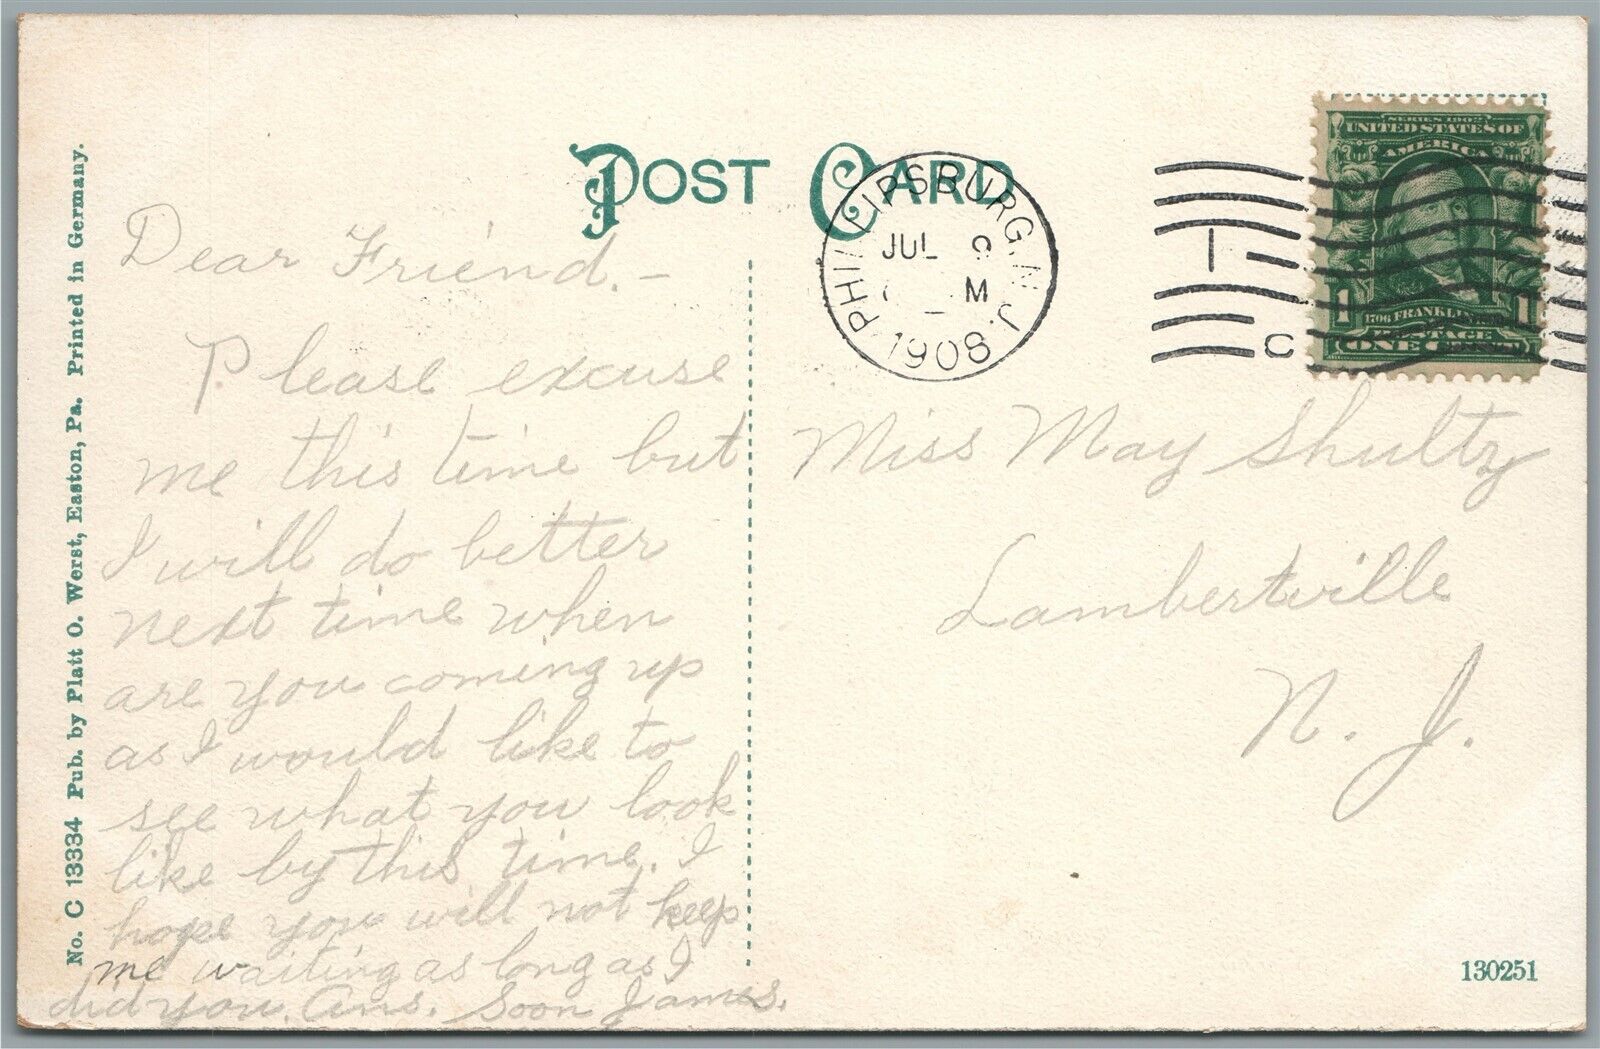 POST CARD
PHILLIPSBURG, N. J.
JUL 9
M
1908
1
C
SERIES 1902
UNITED STATES OF
AMERICA
1 1706 FRANKLIN 1
POSTAGE
ONE
No. C 13334 Pub. by Platt O. Werst, Easton, Pa. Printed in Germany.
Dear Friend. –
Please excuse
me this time but
I will do better
next time when
are you coming up
as I would like to
see what you look
like by this time. I
hope you will not keep
me waiting as long as I
did you. Ans. Soon James.
Miss May Shultz
Lambertville
N. J.
130251